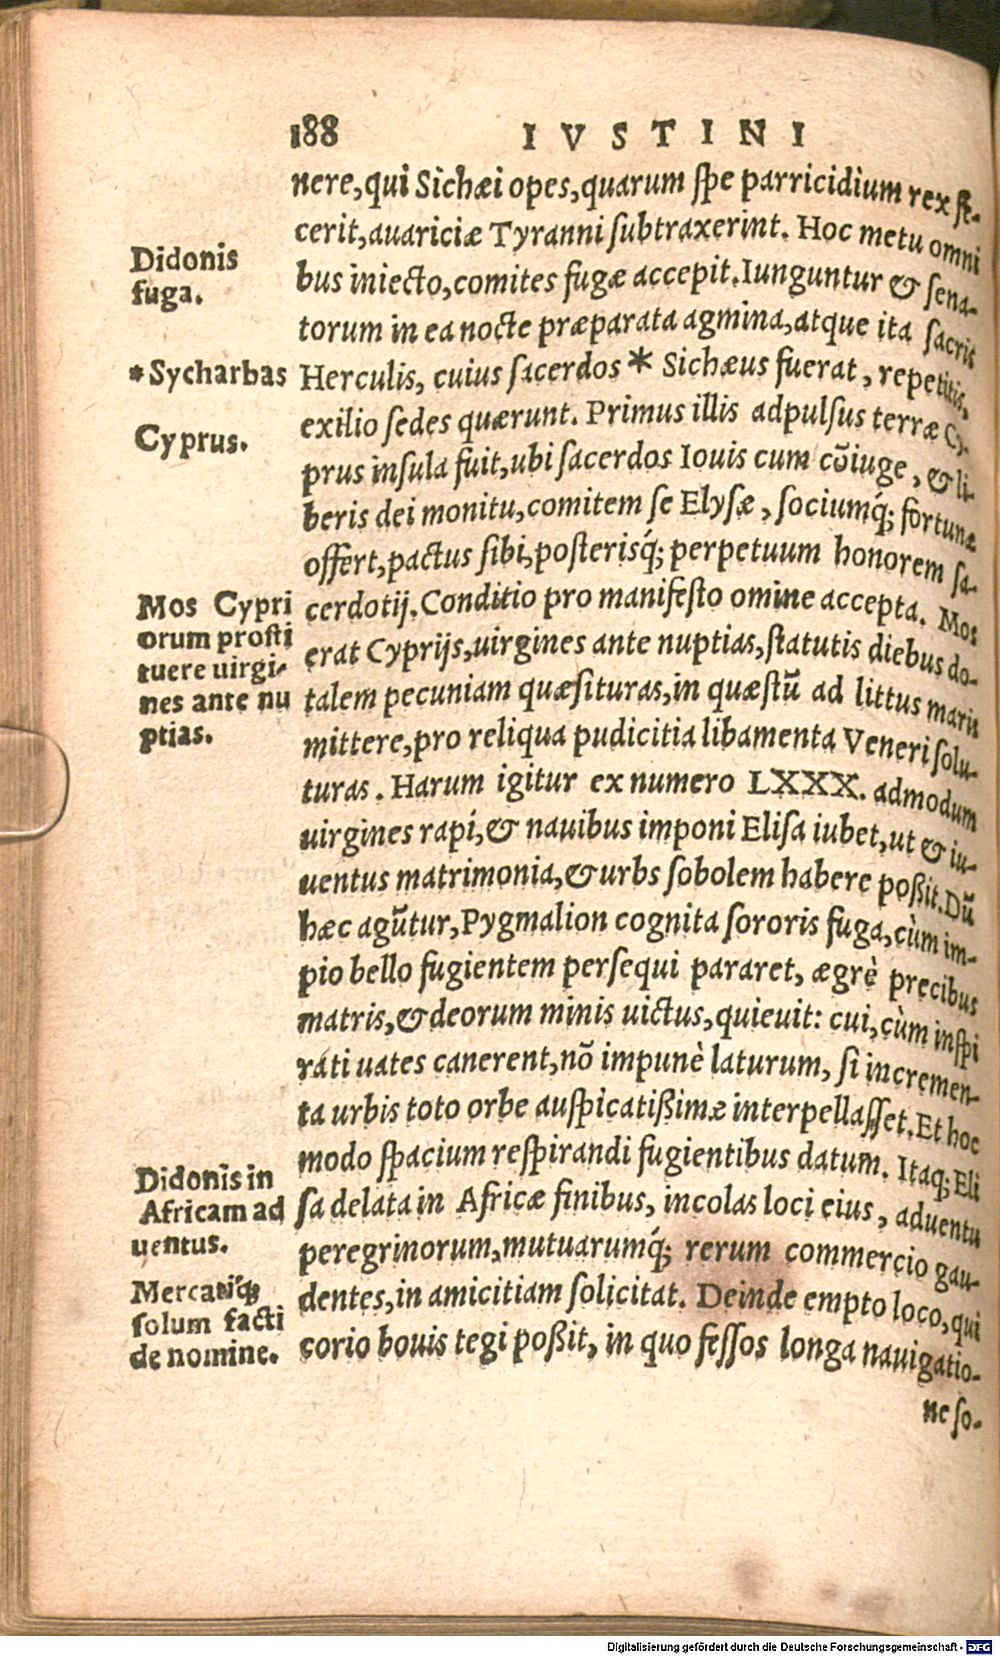 188 IVSTINI
nere, qui Sichæi opes, quarum ſpe parricidium rex fe-
cerit, auariciæ Tyranni ſubtraxerint. Hoc metu omni
Didonis
fuga.
bus iniecto, comites fugæ accepit. Iunguntur & ſena-
torum in ea nocte præparata agmina, atque ita ſacris
*Sycharbas
Herculis, cuius ſacerdos * Sichæus fuerat, repetitis,
exilio ſedes quærunt. Primus illis adpulſus terræ Cy-
Cyprus.
prus inſula fuit, ubi ſacerdos Iouis cum cõiuge, & li-
beris dei monitu, comitem ſe Elyſæ, ſociumq́; fortunæ
offert, pactus ſibi, poſterisq́; perpetuum honorem ſa-
Mos Cypri
orum proſti
tuere uirgi-
nes ante nu
ptias.
cerdotij. Conditio pro manifeſto omine accepta. Mos
erat Cyprijs, uirgines ante nuptias, ſtatutis diebus do-
talem pecuniam quæſituras, in quæſtũ ad littus maris
mittere, pro reliqua pudicitia libamenta Veneri ſolu-
turas. Harum igitur ex numero LXXX. admodum
uirgines rapi, & nauibus imponi Eliſa iubet, ut & iu-
uentus matrimonia, & urbs ſobolem habere poßit. Dũ
hæc agũtur, Pygmalion cognita ſororis fuga, cùm im-
pio bello fugientem perſequi pararet, ægrè precibus
matris, & deorum minis uictus, quieuit: cui, cùm inſpi
rati uates canerent, nõ impunè laturum, ſi incremen-
ta urbis toto orbe auſpicatißimæ interpellaſſet. Et hoc
modo ſpacium reſpirandi fugientibus datum. Itaq; Eli
Didonis in
Africam ad
uentus.
ſa delata in Africæ finibus, incolas loci eius, aduentu
peregrinorum, mutuarumq́; rerum commercio gau-
Mercatiq́;
ſolum facti
de nomine.
dentes, in amicitiam ſolicitat. Deinde empto loco, qui
corio bouis tegi poßit, in quo feſſos longa nauigatio-
ne ſo-
Digitalisierung gefördert durch die Deutsche Forschungsgemeinschaft - DFG